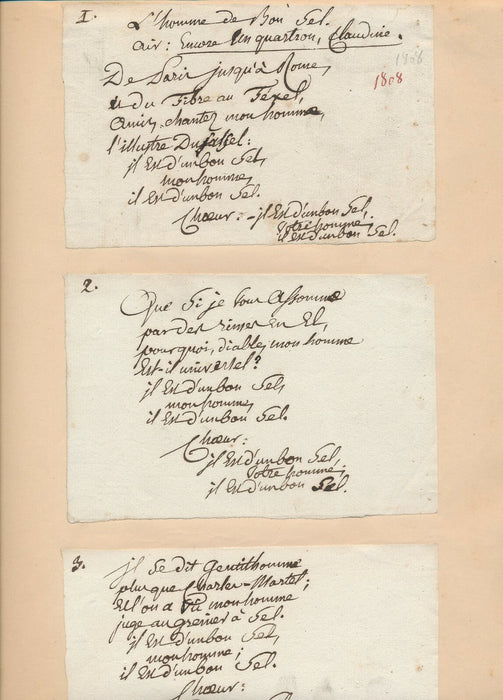 1.
L'homme de Bon Sel.
air: Encore Un quartron, Claudine.
1808
1808
De Paris jusqu'à Rome,
et du Tibre au Texel,
amis, chantez mon homme,
l'illustre Dufassel:
il Est d'un bon Sel,
mon homme,
il Est d'un bon Sel.
Chœur: - il Est d'un bon Sel,
Votre homme,
il est d'un bon Sel.
2.
Que si je vous assomme
par des rimes en El,
pourquoi, diable, mon homme
Est-il universel?
il Est d'un bon Sel,
mon homme,
il Est d'un bon Sel.
Chœur:
il Est d'un bon Sel,
Votre homme,
il Est d'un bon Sel.
3.
il Se dit Gentilhomme
plus que Charles-Martel;
Et l'on a Vu mon homme
juge au grenier à Sel.
il Est d'un bon Sel,
mon homme;
il Est d'un bon Sel.
Chœur: